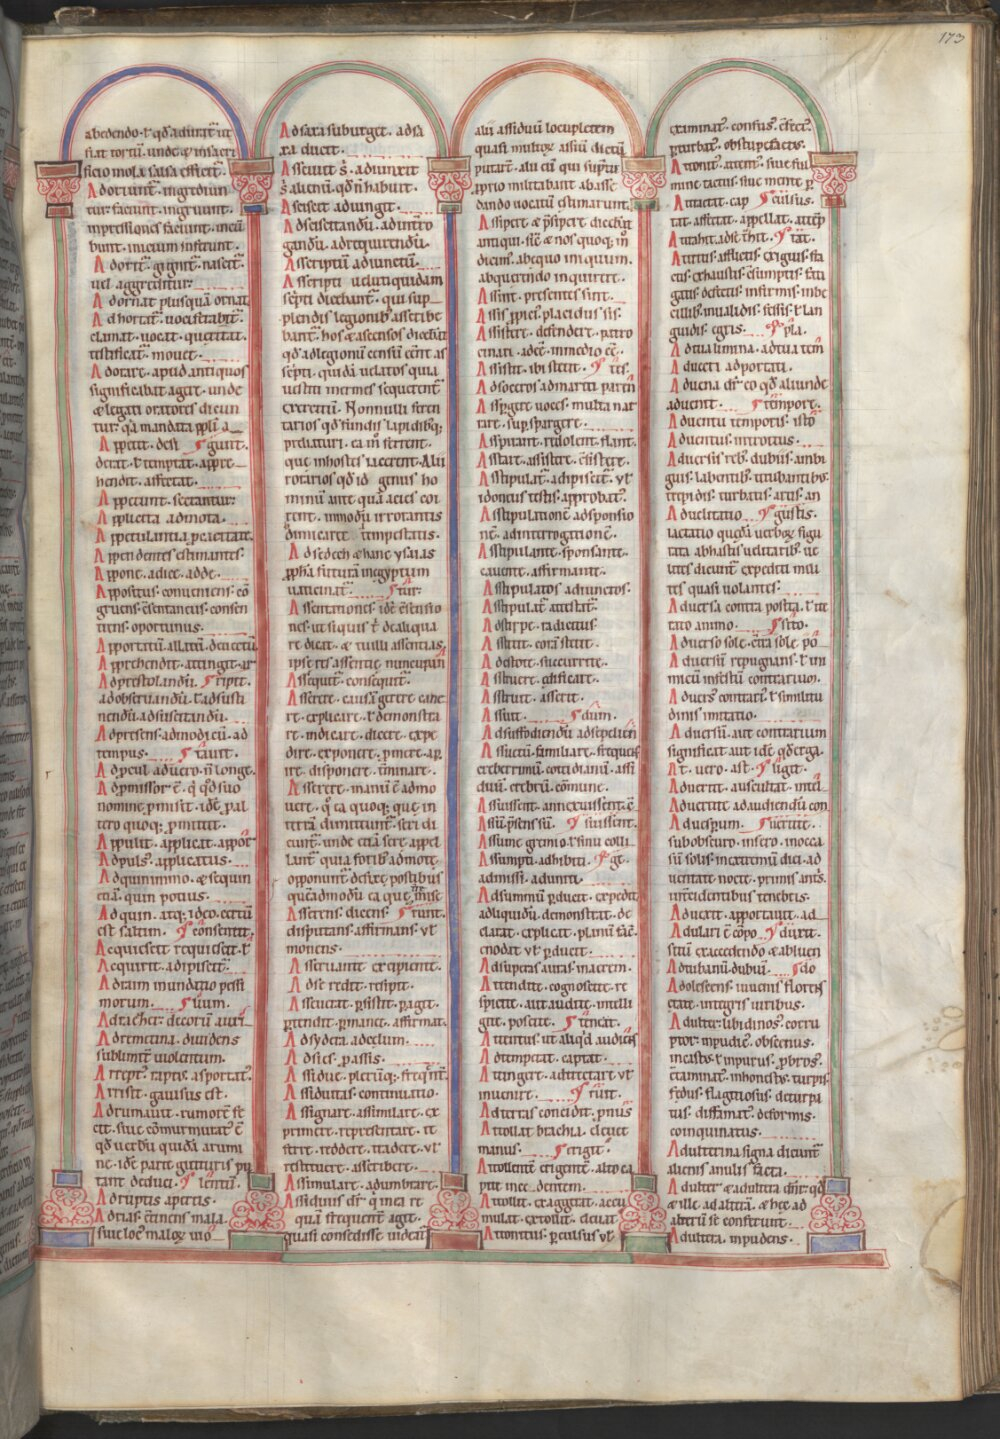 173
abedendo· ł qd̄ adurat᷑ ut
fiat tortū· unde &
ficio mola salsa
A doriunt᷑· ingrediun
tur· faciunt· ingruunt·
impressiones faciunt· incū
bunt· inicium inferunt·
A dorit᷑· gignit᷑· nascit᷑·
uel aggreditur·
A dornat plusquā ornat
A dhortat᷑· uociferat᷑
clamat· uocat· queritat·
testificat᷑· mouet·
A dorare· apud antiquos
significabat agere· unde
& legati oratores dicun
tur· qa mandata ppli a
A ppetit· desi ¶ gunt·
derat· ł temptat· appre
hendit· affectat·
A ppetunt· sectantur·
A pplicita· admota·
A ppetulantia· peracitate·
A ppendentes· estimantes·
A ppone· adice· adde·
A ppositus· conueniens· cō
gruens· c̄sentaneus· consen
tiens· oportunus·
A pportatū· allatū· deuectū
A pprehendit· attingit· ar
A dprestolandū· ¶ ripit·
ad obseruandū· ł adsusti
nendū· adsuscitandū·
A dpresens· admodicū· ad
tempus· ¶ tauit·
A dp̄cul· aduero· n̄ longe·
A dp̄missor· ē· q̄ qd̄ suo
nomine p̄misit· idē· p̄ al
tero quoq; p̄mittit·
A ppulit· applicat· appor
A dpuls᷒· applicatus·
A dquin immo· & sequin
etiā· quin potius·
A dquin· atq; ideo· certū
est· saltim· ¶ consentit·
A equiescit· requiescit· ł
A equirit· adipiscit᷑·
A draim inundatio pessi
morum· ¶ suum·
A dtacher· decorū· auri
A dremetina· diuidens
sublimit᷑ uiolentum·
A rrept᷒· raptus· asportat᷒·
A rrisit· gauisus est·
A drumauit· rumorē fe
cit· siue cōmurmurat᷒ ē
qd̄ uerbū quida arumi
ne· idē parte gutturis pu
tant deduci· ¶ lentiū·
A druptis· apertis·
A drias· c̄tinens mala·
siue loc᷒ maloꝝ uio
A dsara suburget· adsa
ra ducet·
A ssciuit s̄· adiunxit
s̄· alienū· qd̄ n̄ habuit·
A sciscit· adiungit·
A dsciscendū· adintro
gandū· adrequirendū·
A scriptū· adiunctū·
A scripti· ueluti quidam
scpti dicebant᷑· qui sup
plendis legionib᷒ ascribe
bant᷑· hos & ascensos dicebāt
qd̄ ad legionū censū eēnt as
scpti· quidā uelatos quia
uestiti inermes sequerent᷑
exercitū· Nonnulli feren
tarios qd̄ fundis lapidib᷒q;
preliaturi· ea m̄ ferrent·
que in hostes iacerent· Alii
rorarios qd̄ id genus ho
minū ante quā acies coi
rent· in modū irrorantis
dimicaret tempestatis·
A dsedech & hanc ysaias
ppha futurā in egyptum
uaticinat᷑· ¶ tur·
A ssentiones· idē c̄sensio
nes· ut si quis t̄ de aliqua
re dicat· & tu illi assentias·
ipse res assentie nuncupan
A ssequit᷑· consequit᷑·
A sserere· causā gerere· cane
re· explicare· ł demonstra
re· indicare· dicere· expe
dire· exponere· p̄mere· ap
ire· disponere· t̄minare·
A sserere· manū ē· admo
uere· q̄ ea quoq; que in
terrā dimittunt᷑· seri di
cunt᷑· unde etiā sere appel
lant᷑ quia forib᷒ admote
opponunt᷑· defixe postibus
quēadmodū ea que in̄ mise
A sserens· dicens· ¶ runt·
disputans· affirmans· ul᷒
monens·
A sseruante· excipiente·
A dse redit· resipit·
A sseuerat· p̄sistit· p̄agit·
p̄tendit· p̄manet· affirmat·
A dsydera· adcelum·
A dsies· passis·
A ssidue· pleriq; freq̄nt᷑·
A ssiduitas· continuatio·
A ssignare· assimilare· ex
primere· representare· re
ferre· reddere· tradere· ul᷒
restituere· ascribere·
A ssimulare· adumbrare·
A ssiduus· dr̄· q̄ in ea re
quam frequent᷑ agit·
quasi consedisse uideat᷑
alii assiduū locupletem
quasi multoꝝ assiū dictū
putant· alii eū qui sūptu
pprio militabant ab asse
dando uocatū estimarunt·
A sspice· & p̄spice· dicebant
antiqui· sic̄ & nos quoq; in
dicim᷒· ab equo iniquum·
abquerendo inquirere·
A ssint· presentes sint·
A ssis· ppicius· placidus sis·
A ssistere· defendere· patro
cinari· adeē· in medio eē·
A ssistit· ibi stetit· ¶ tes·
A dsoceros· admariti paren
A sspergere uoces· multa nar
rare· sup̄ spargere·
A sspirant· redolent· flant·
A sstare· assistere· c̄sistere·
A sstipulat᷑· adipiscit᷑· ul᷒
idoneus testis· approbat᷒·
A sstipulationē· adsponsio
nē· adinterrogationē·
A sstipulante· sponsante·
cauente· affirmante·
A sstipulatos· adiunctos·
A sstipulat᷑· attestat᷑·
A dstirpe· radictus·
A sstitit· corā stetit·
A dstore· succurrere·
A sstruere· ędificare·
A sstruit· asserit·
A ssuit· ¶ dum·
A dsuffodiendū· adsepelien
A ssuetū· familiare· frequēs·
creberrimū· cottidianū· assi
duū· crebrū· cōmune·
A ssuissent· annexuissent· c̄
A ssū· p̄sens sū· ¶ suissent·
A ssume gremio· ł sinu colli
A ssumpti· adhibiti· ¶ ge·
admissi· adiuncti·
A dsummū p̄ducit· expedit·
adliquidū· demonstrat· de
clarat· explicat· planū facit·
enodat· ul᷒ p̄ducit·
A dsuperas auras· in aerem·
A ttendite· cognoscite· re
spicite· aut audite· intelli
gite· poscite· ¶ tineat·
A ttinet· ut aliqd̄ audiens
A dtemperat· captat·
A ttingere· adtrectare· ul᷒
inuenire· ¶ runt·
A dtertas· concidit· pnius
A ttollat brachia· eleuet
manus· ¶ erigit·
A ttollentē· erigentē· alto ca
pite incedentem·
A ttollit· exaggerat· accu
mulat· extollit· eleuat·
A ttonitus· p̄culsus· ul᷒
examinat᷒· confusus· effect᷒·
p̄turbat᷒· obstupefactus·
A ttonit᷒· attent᷒· siue ful
mine tactus· siue mente p̄
A ttractat· cap ¶ culsus·
tat· affectat· appellat· accep
A ttrahit· ad se t̄hit· ¶ tat·
A ttritus· afflictus· exiguus· fra
ctus· exhaustus· c̄sumptus· fati
gatus· defectus· infirmus· inbe
cillis· inualidus· fessus· ł lan
guidus· egris· ¶ pla·
A dtua lumina· adtua tem
A duecti· adportati·
A duena· dr̄· eo qd̄ aliunde
adueniat· ¶ tempore·
A duentu temporis· isto
A duentus· introitus·
A duersis reb᷒· dubiis· ambi
guis· labentib᷒· titubantib᷒·
trepidis· turbatis· artis· an
A duelitatio ¶ gustis·
iactatio quedā uerboꝝ figu
rata ab hastis uelitarib᷒· ue
lites dicunt᷑ expediti mili
tes quasi uolantes·
A duersa· contra posita· ł irri
tato animo· ¶ sito·
A duerso sole· c̄tra sole· po
A duersū· repugnans· ł ini
micū· infestū· contrarium·
A duers᷒· contrari᷒· ł similitu
dinis imitatio·
A duersū· aut contrarium
significat aut idē qd̄ erga·
A t· uero· ast· ¶ ligit·
A duertit· auscultat· intel
A duertite· ad audiendū con
A duesperum· ¶ uertite·
subobscuro· in sero· in occa
sū solis· in extremū diei· ad
ueritate nocte· primis antī·
int̄cidentibus tenebris·
A duexit· apportauit· ad
A dulari ē cōpo ¶ duxit·
sitiū ex accedendo & abluen
A dtubanū· dubiū· ¶ do
A dolescens· iuuenis· floren
etate· integris uiribus·
A dulter· libidinos᷒· corru
ptor· impudic᷒· obscenus·
incestus· ł impurus· p̄bros᷒·
c̄taminat᷒· inhonestus· turpis
fedus· flagitiosus· deturpa
tus· diffamat᷒· deformis·
coinquinatus·
A dulterina signa dicunt᷑
alienis anulis facta·
A dulter & adultera dn̄r· qd̄
& ille ad alterā· & hęc ad
alterū se conferunt·
A dultera· inpudens·